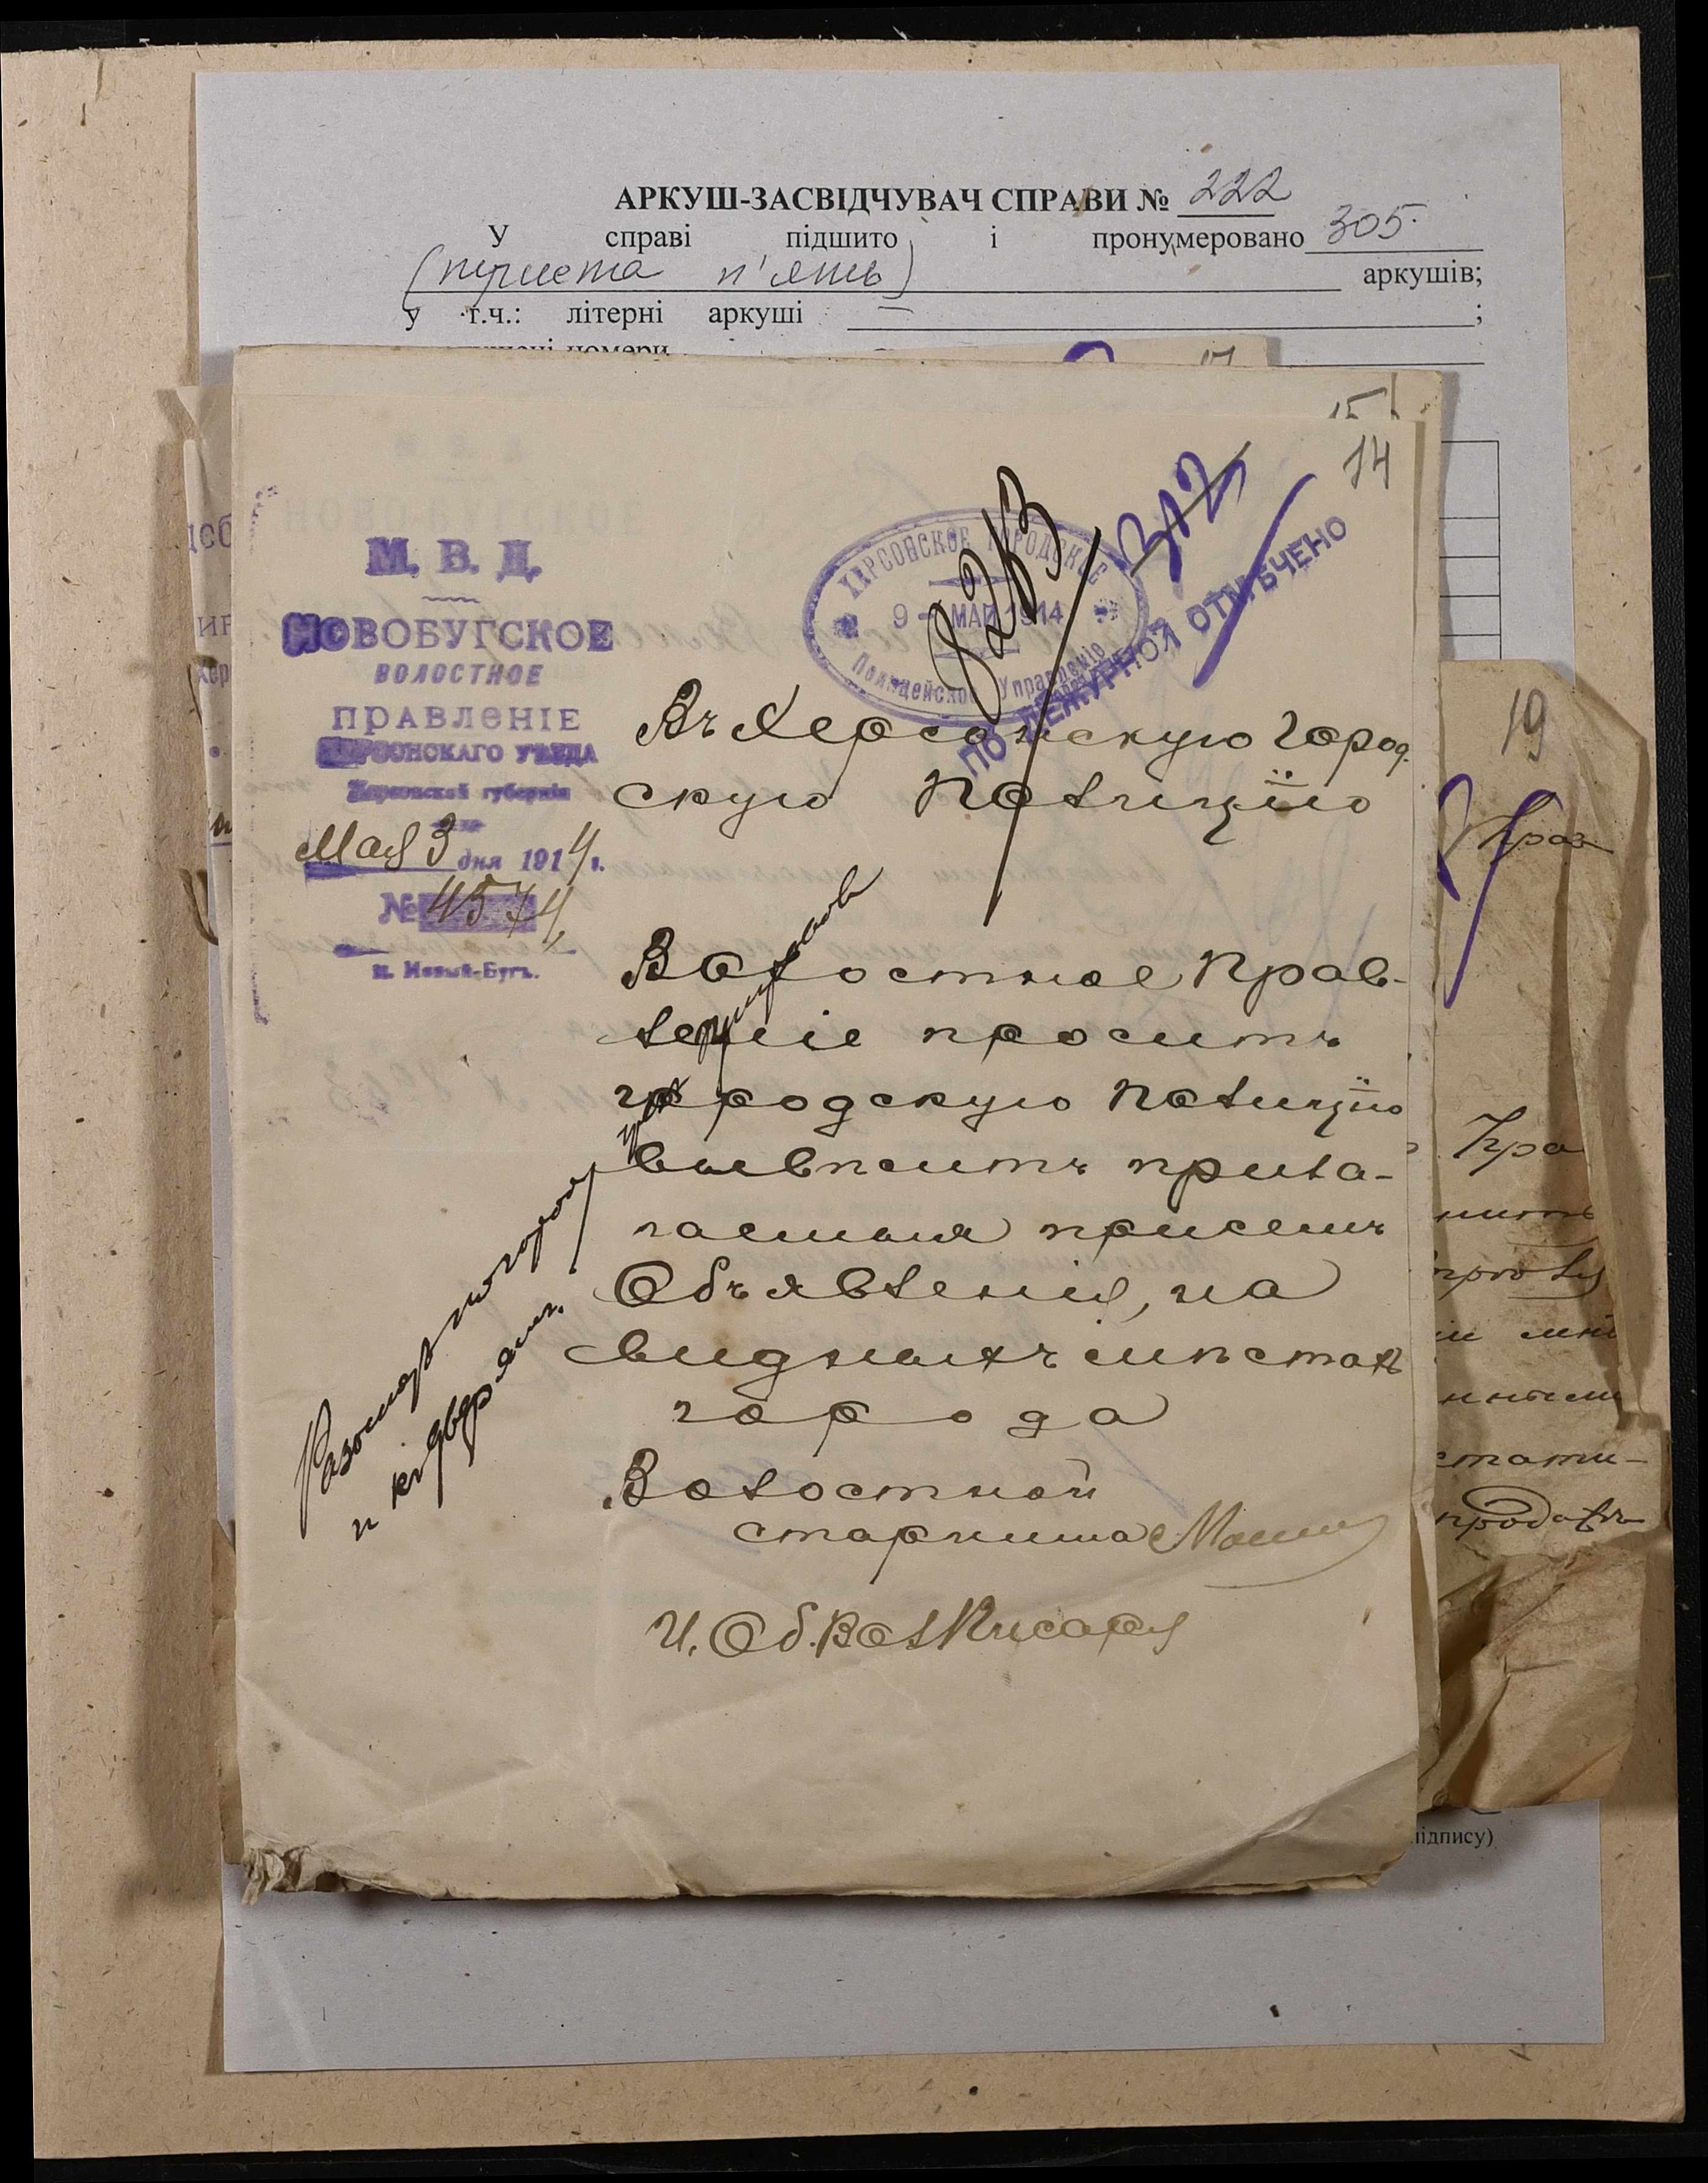 АРКУШ-ЗАСВІДЧУВАЧ СПРАВИ № 222
У справі підшито і пронумеровано 305
(триста п'ять) аркушів;
у т.ч.: літерні аркуші ;
номери
15
14
М. В. Д.
НОВОБУГСКОЕ
ВОЛОСТНОЕ
ПРАВЛЕНІЕ
ХЕРСОНСКАГО УѢЗДА
Херсонской губерніи
Мая 3 дня 1914 г.
№ 4574
п. Новый-Бугъ.
ХЕРСОНСКОЕ ГОРОДСКОЕ
9 - МАЙ 1914
Полицейское Управленіе
8283
312
ПО ДЕЖУРНОЙ ОТМѢЧЕНО
Въ Херсонскую Город-
скую Полицію
Волостное Прав-
леніе проситъ
городскую Полицію
вывѣсить прила-
гаемыя при семъ
Объявленія, на
видныхъ мѣстахъ
города
Волостной
старшина
И. Об. Вол Писаря
и къ дверямъ.
19
Кра
нить
стати-
підпису)